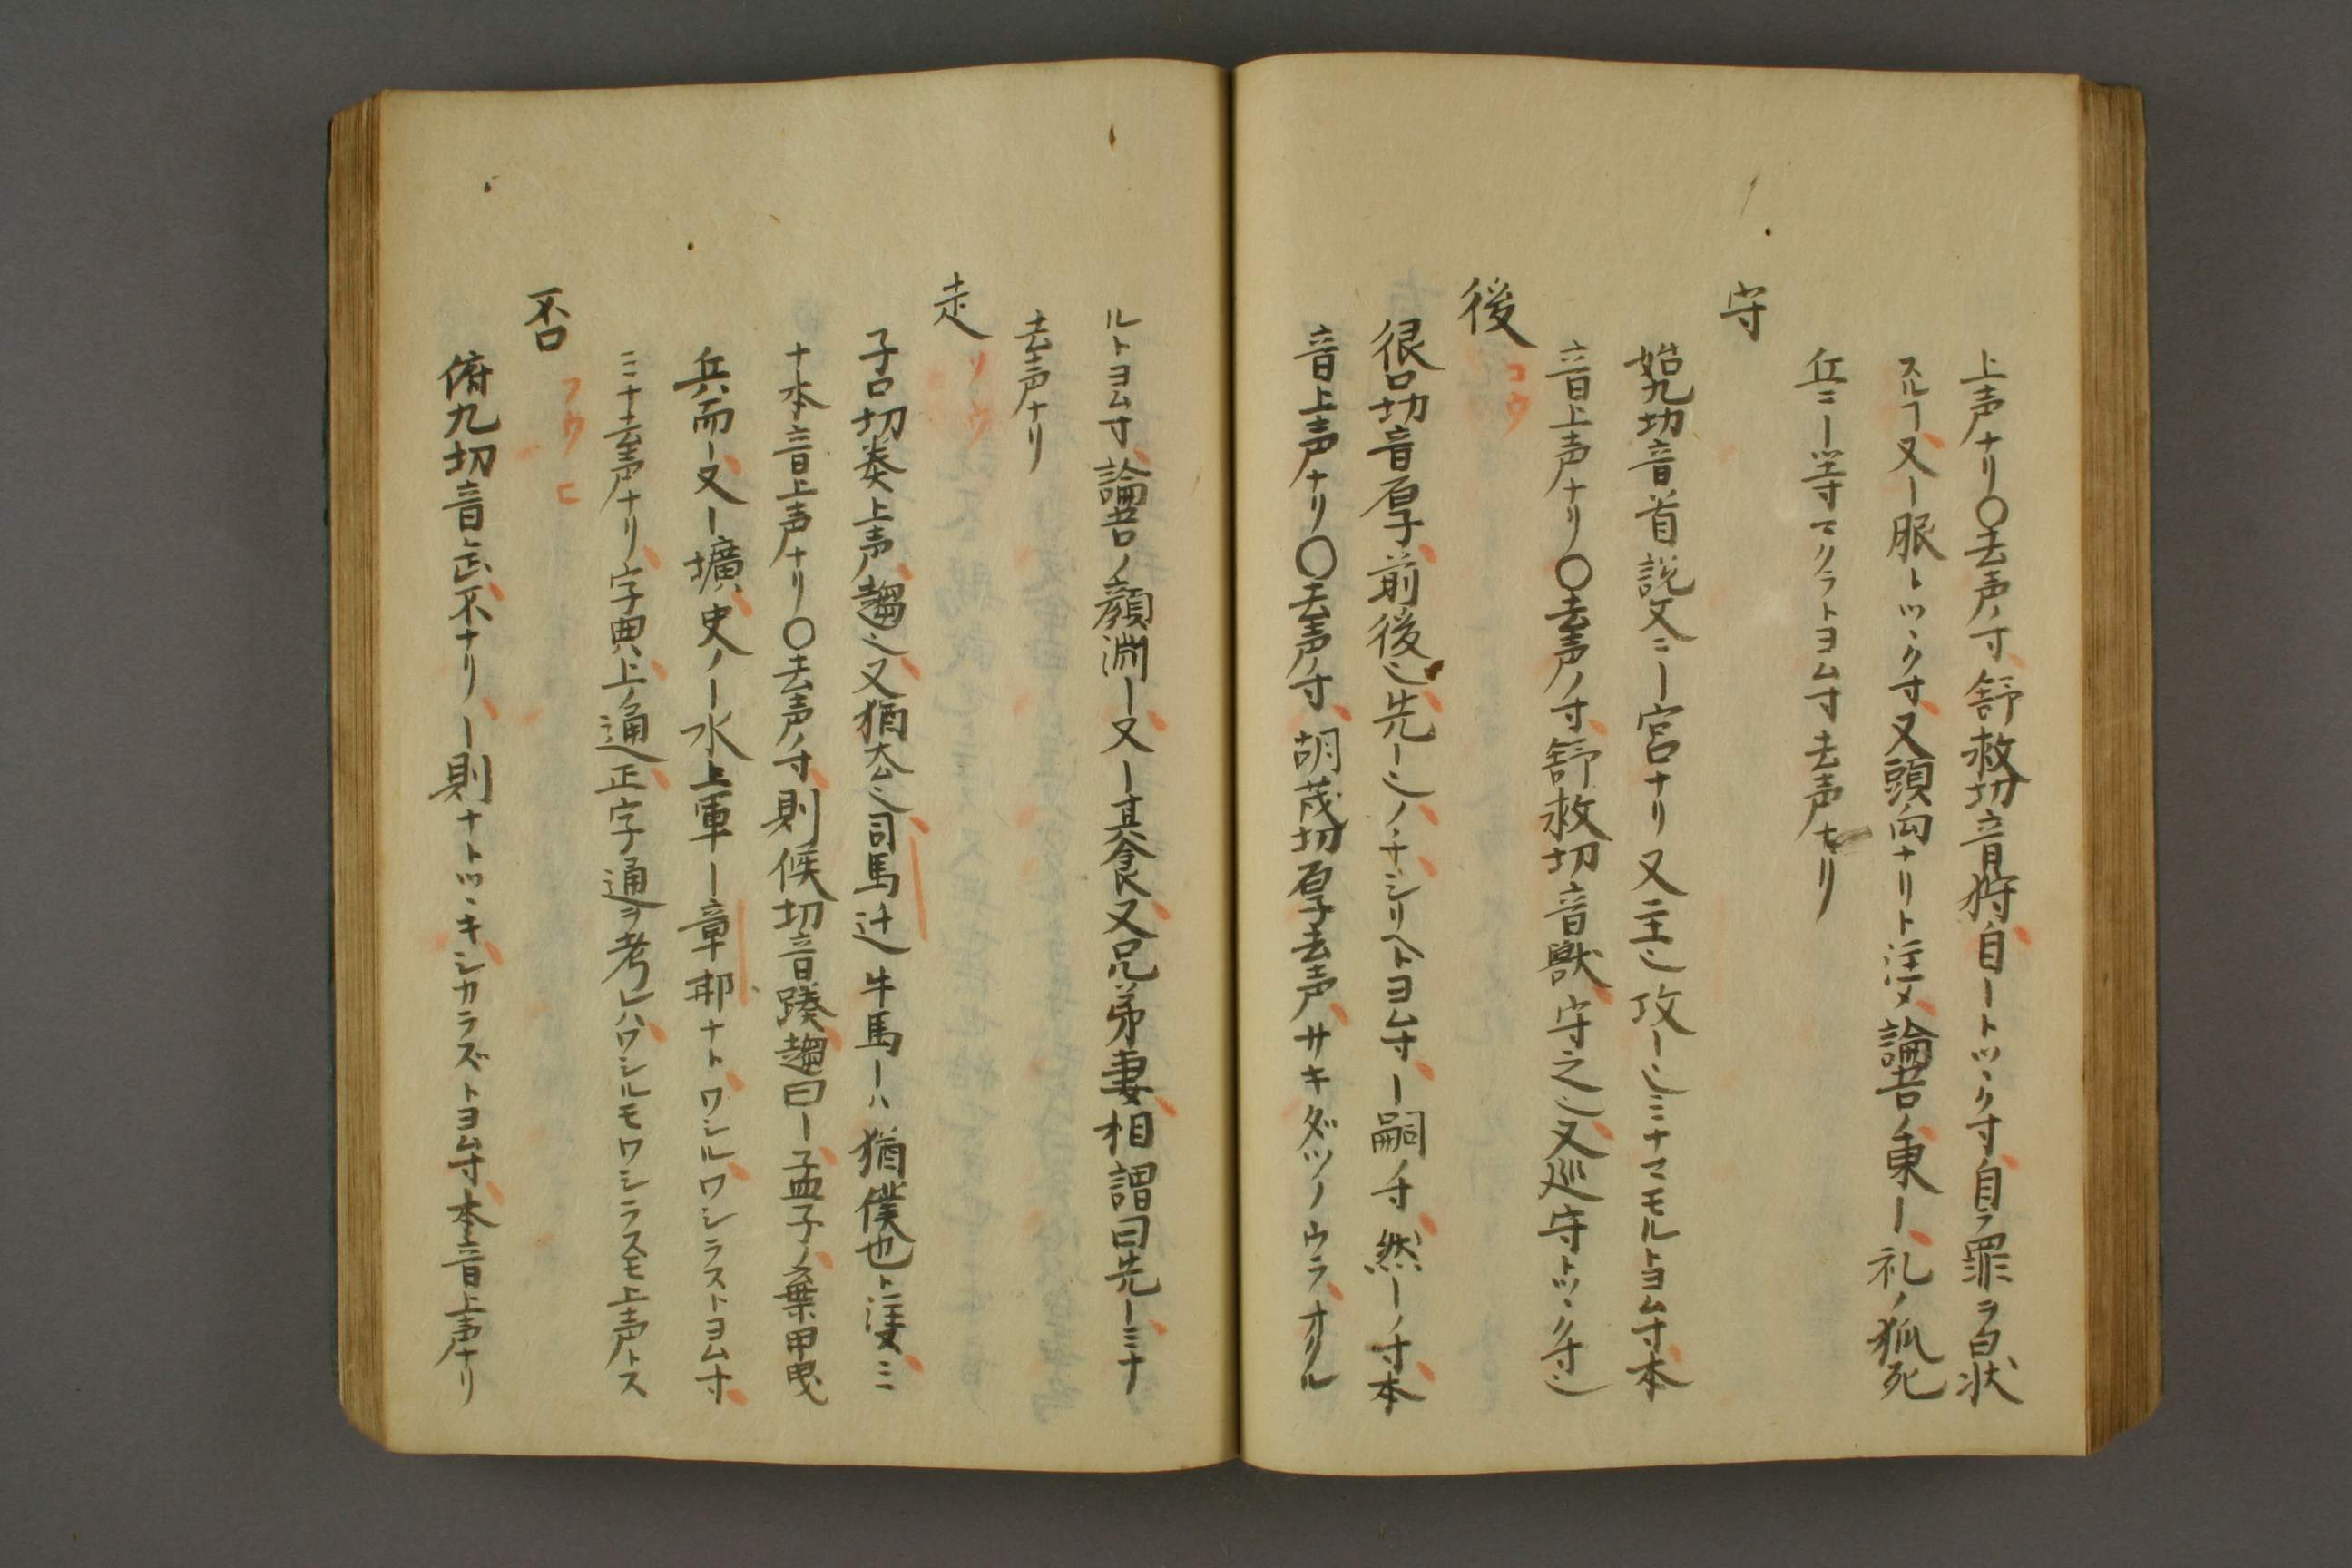 上声ナリ〇去声ノ寸舒救切音狩自ートツヽク寸自ラ罪ヲ白状
スルヿ又ー服トツヽク寸又頭向ナリト注ス論吾ノ東ー礼ノ狐死
丘ニー等マクラトヨム寸去声ナリ
守
始九切音首説文ニー宮ナリ又主也攻ー也ミナマモルトヨム寸本
音上声ナリ〇去声ノ寸舒救切音獣守之也又巡守トツヽク寸也
後
コウ
很口切音厚前後也先ー也ノチシリヘトヨム寸ー嗣ノ寸然ーノ寸本
音上声ナリ〇去声ノ寸胡茂切厚去声サキダツノウラオクル
ルトヨム寸論吾ノ顔淵ー又ー其食又兄弟妻相謂曰先ーミナ
去声ナリ
走
ソウ
子口切奏上声趨也又猶太公之司馬迁牛馬ーハ猶僕也ト注スミ
ナ本音上声ナリ〇去声ノ寸則候切音蹂趨曰ー孟子ノ棄甲曳
兵而ー又ー壙史ノー水上軍ー章邯ナトワシルワシラストヨム寸
ミナ去声ナリ字典上ノ通正字通ヲ考レハワシルモワシラスモ上声トス
否
フウ ヒ
俯九切音缶不ナリノー則ナトツヽキシカラズトヨム寸本音上声ナリ